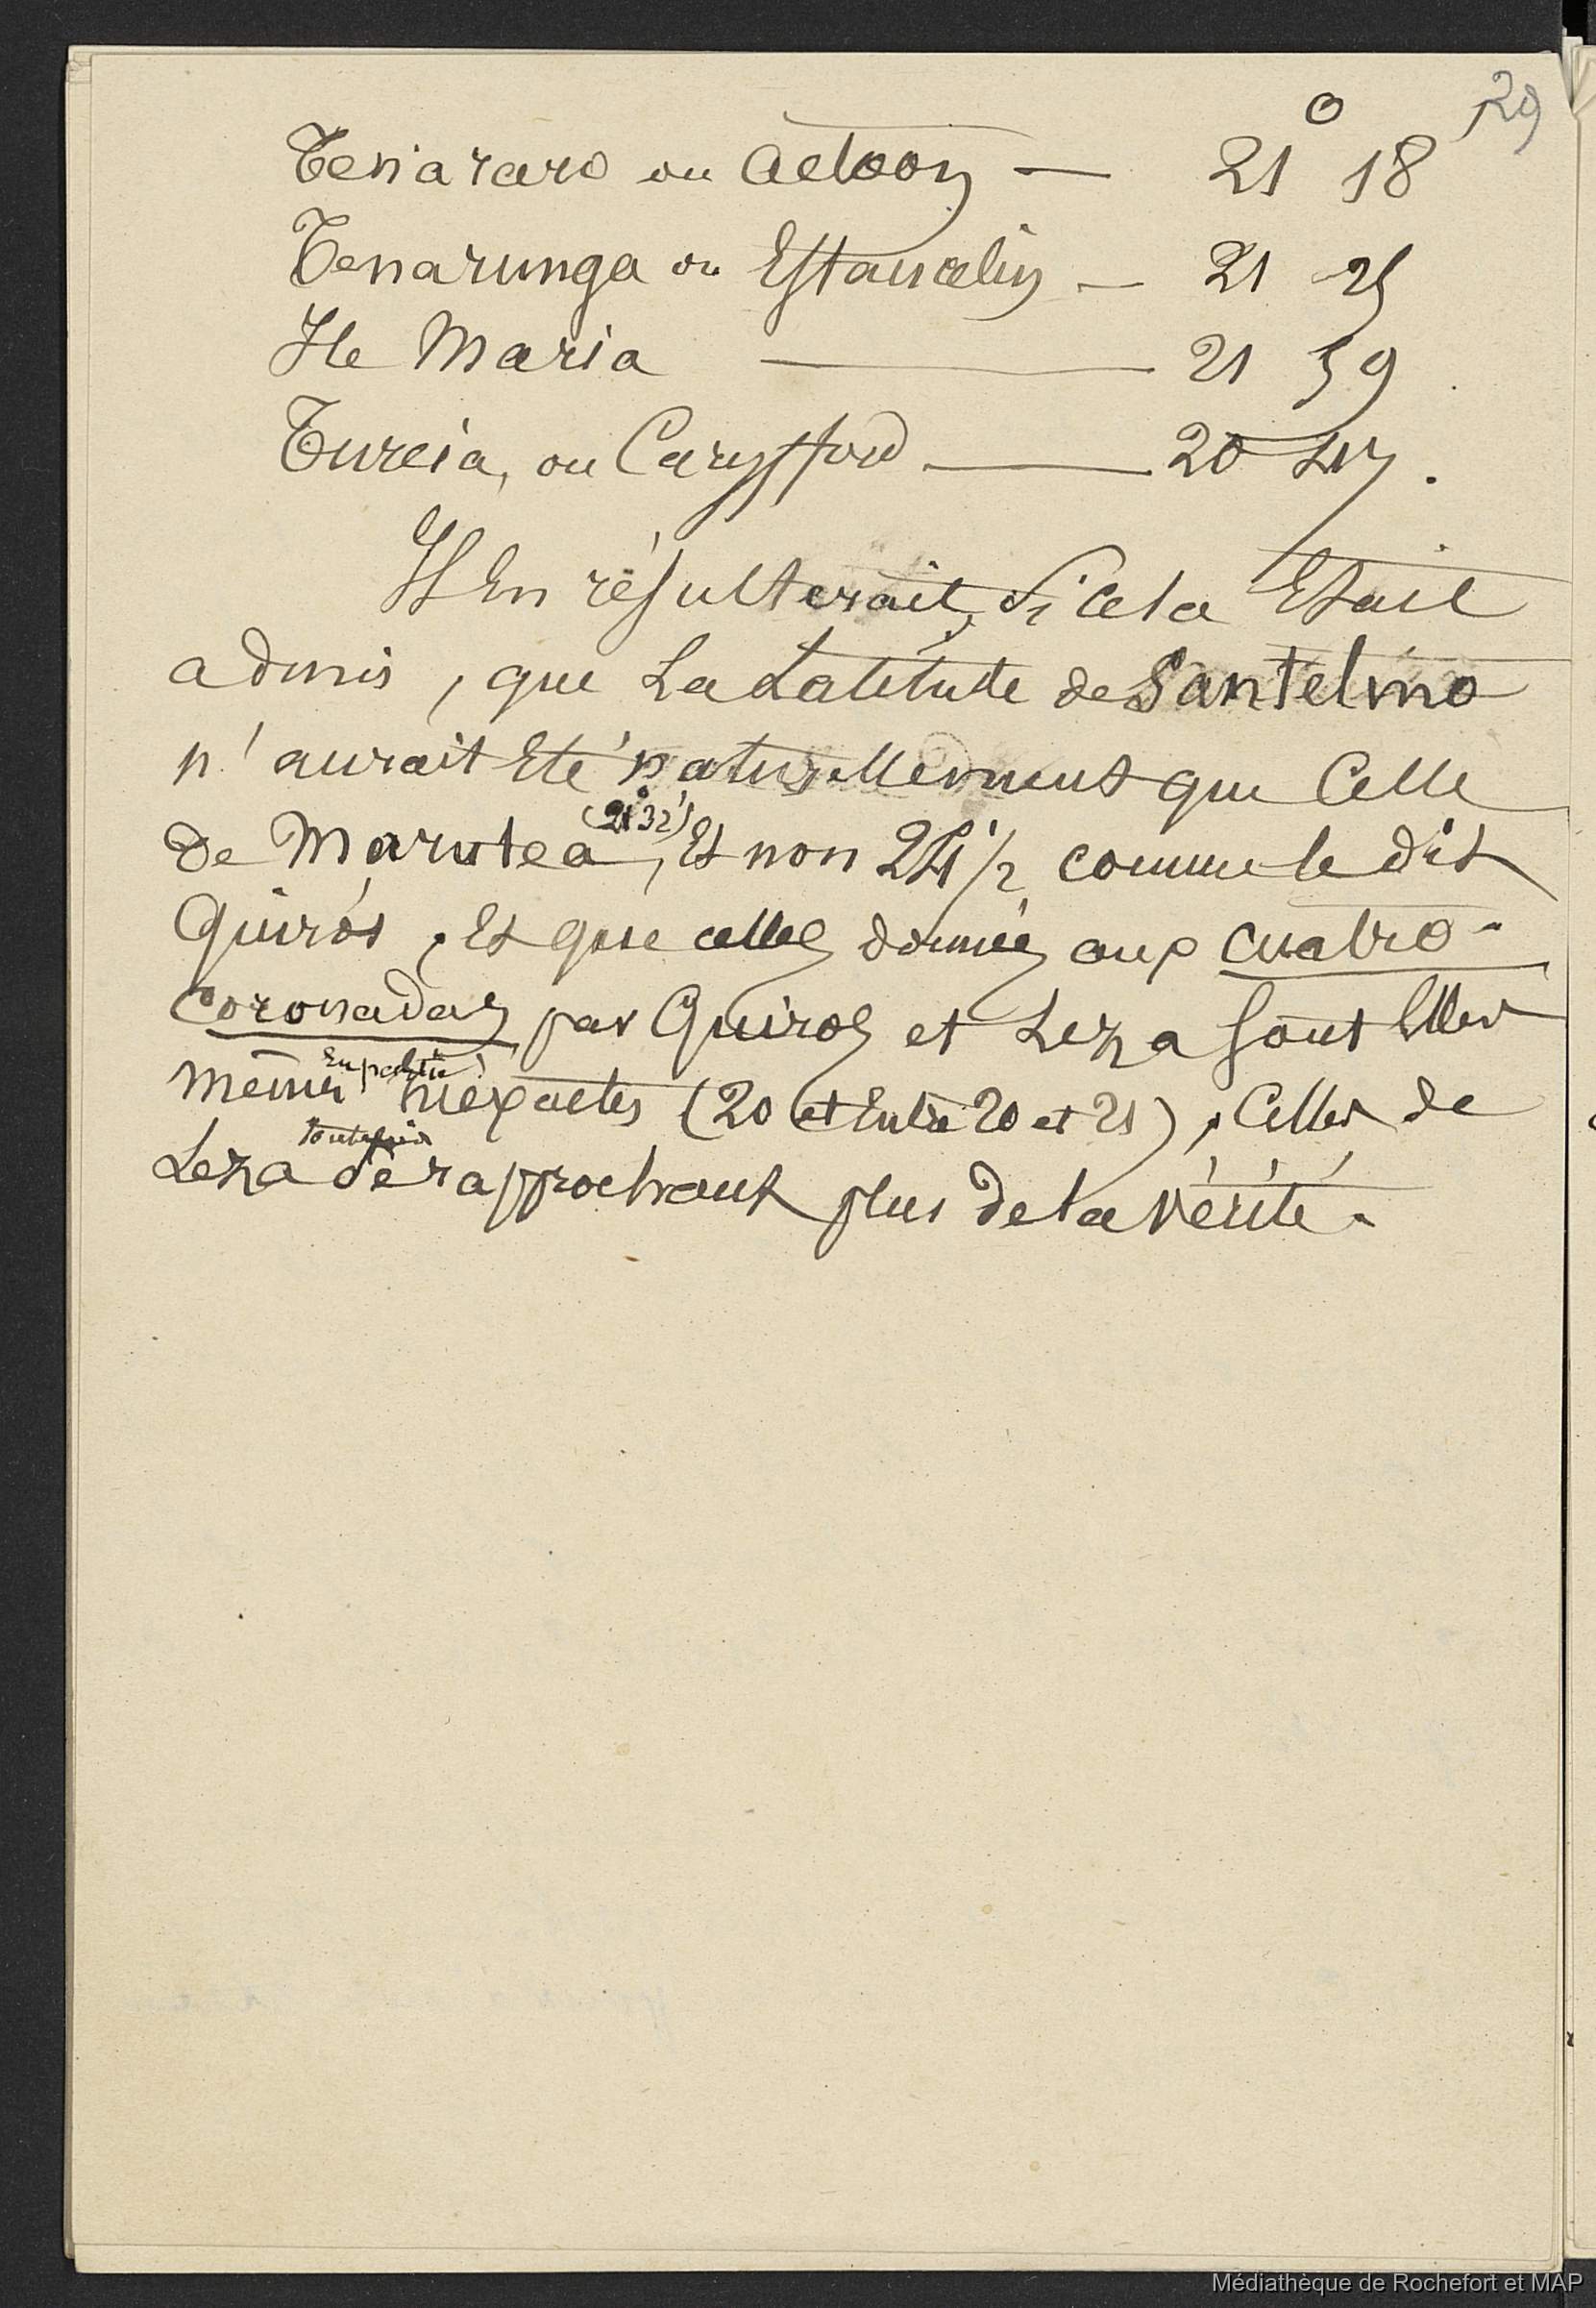 129
Tenararo ou Acteon — 21° 18
Tenarunga ou Estancelin — 21 25
Ile Maria — 21 59
Tureia, ou Carysford — 20 47.
Il en résulterait, si cela Etait
admis, que La Latitude de Santelmo
n'aurait Eté naturellement que Celle
de Marutea, (21° 32') Et non 21 1/2 comme le dit
Quiros, Et que celles données aux cuatro-
coronadas par Quiros et Leza sont Elles
mêmes en partie inéxactes (20 et Entre 20 et 21), Celles de
Leza toutefois se rapprochant plus de la vérité.
Médiathèque de Rochefort et MAP